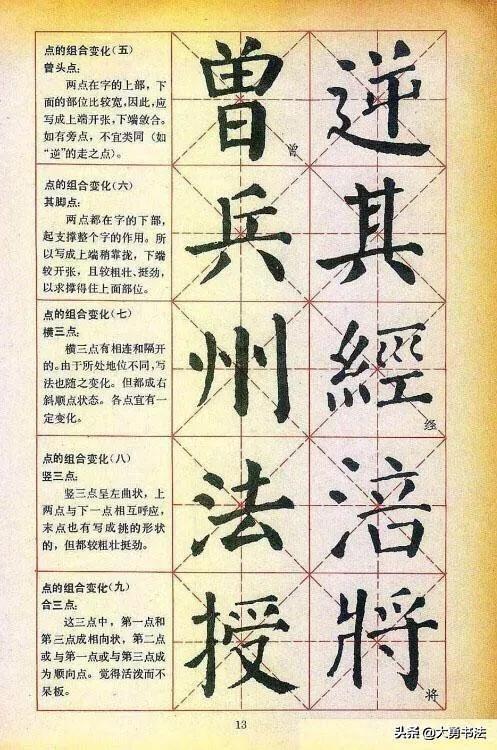 点的组合变化（五）
曾头点：
两点在字的上部，下
面的部位比较宽，因此，应
写成上端开张，下端敛合。
如有旁点，不宜类同（如
“逆”的走之点）。
曾 逆
曾
点的组合变化（六）
其脚点：
两点都在字的下部，
起支撑整个字的作用。所
以写成上端稍靠拢，下端
较开张，且较粗壮、挺劲，
以求撑得住上面部位。
兵 其
点的组合变化（七）
横三点：
横三点有相连和隔开
的。由于所处地位不同，写
法也随之变化。但都成右
斜顺点状态。各点宜有一
定变化。
州 經
经
点的组合变化（八）
竖三点：
竖三点呈左曲状，上
两点与下一点相互呼应，
末点也有写成挑的形状
的，但都较粗壮挺劲。
法 涪
点的组合变化（九）
合三点：
这三点中，第一点和
第三点成相向状，第二点
或与第一点或与第三点成
为顺向点。觉得活泼而不
呆板。
授 將
将
13
头条@大勇书法